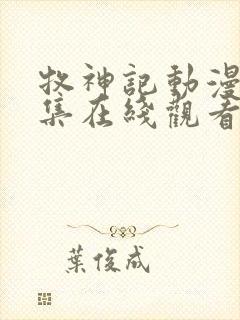 牧神記動漫
集在綫觀看
葉俊成